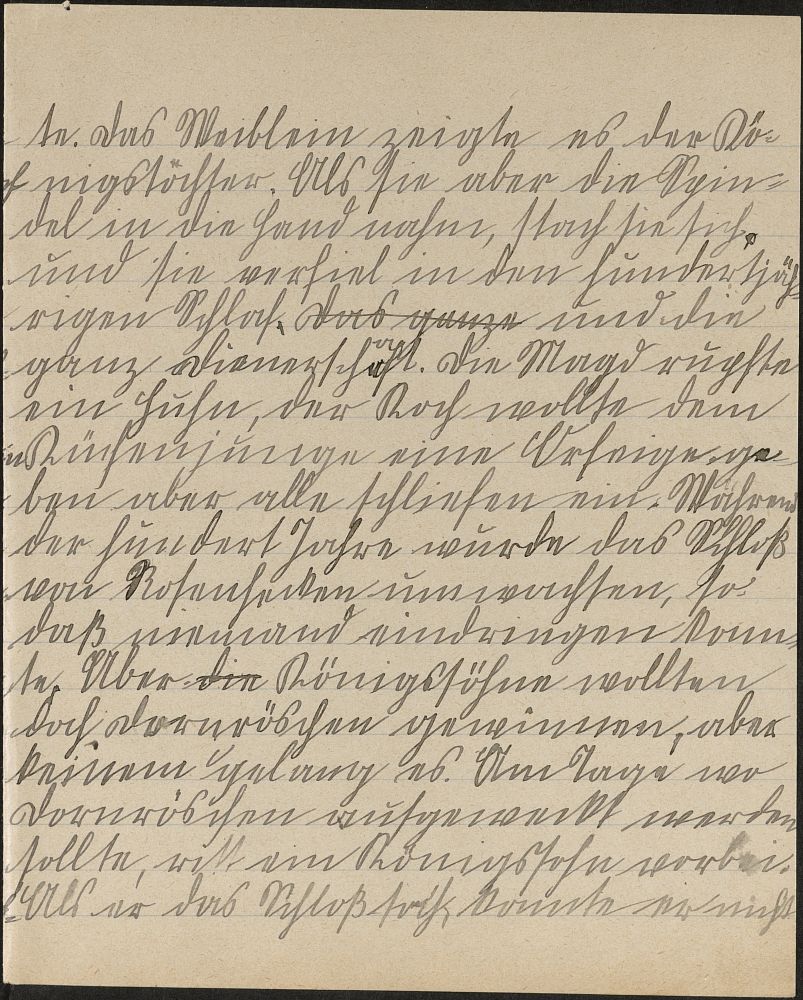 te. Das Weiblein zeigte es der Kö-
nigstochter. Als sie aber die Spin-
del in die Hand nahm, stach sie sich,
und sie verfiel in den hundertjäh-
rigen Schlaf, Das ganze und die
ganz Dienerschaft. Die Magd rupfte
ein Huhn, der Koch wollte dem
Küchenjunge eine Orfeige ge-
ben aber alle schliefen ein. Während
der hundert Jahre wurde das Schloß
von Rosenhecken umwachsen, so-
daß niemand eindringen konn-
te. Aber die Königssöhne wollten
doch Dornröschen gewinnen, aber
keinem gelang es. Am Tage wo
Dornröschen aufgeweckt werden
sollte, ritt ein Königssohn vorbei.
Als er das Schloß sah, konnte er nicht